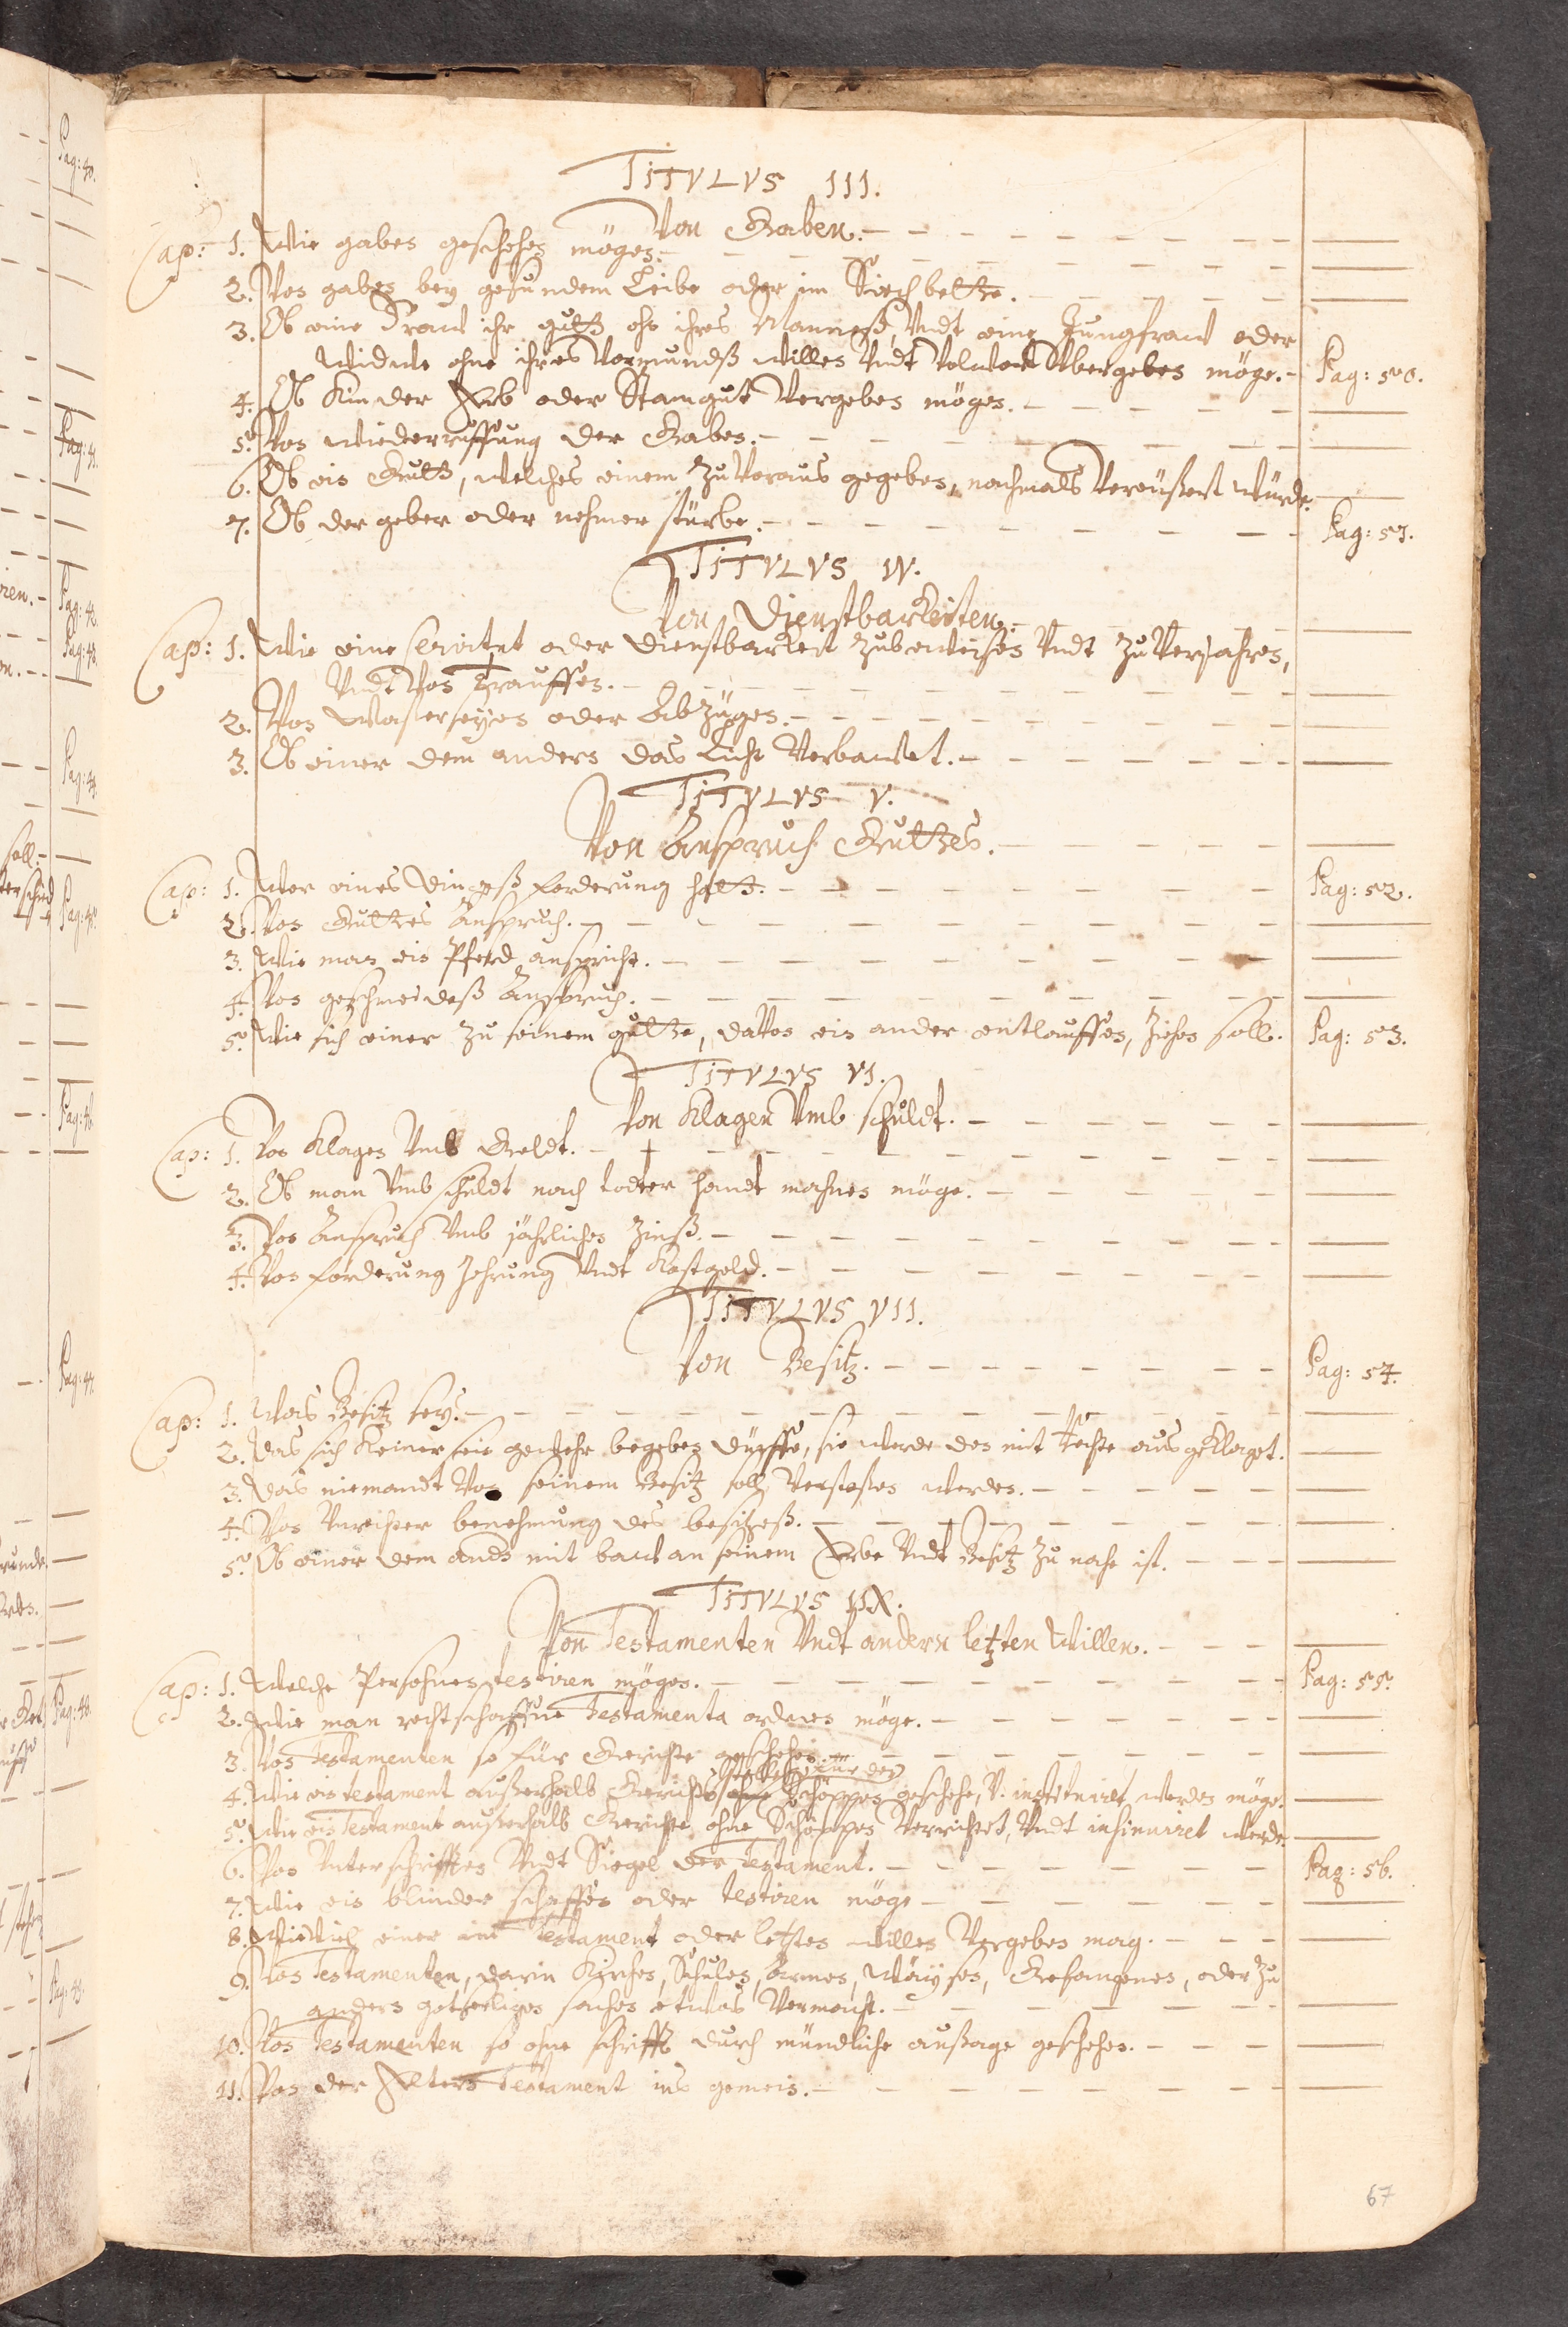 TITVLVS III.
Von Gaben.
Cap: 1. Wie gaben geschehen mögen.
2. Von gaben bey gesundem Leibe oder im Siechbette.
3. Ob eine Fraw ihr gutt ohn ihres Mannesß, Vndt eine Jungfraw oder
Widwe ohne ihres Vormundß willen Vndt Volwort Vbergeben möge. Pag: 50.
4. Ob Kinder Erb oder Stamgut Vergeben mögen.
5. Von wiederruffung der Gaben.
6. Ob ein Gutt, welches einem zuVoraus gegeben, nochmals Vereüßert würde.
7. Ob der geber oder nehmer stürbe. Pag: 51.
TITVLVS IV.
Von Dienstbarkeiten.
Cap: 1. Wie eine servitut oder dienstbarkeit zubeweisen Vndt zuVerjahren,
Vndt Von Trauffen.
2. Von Waßerseygen oder Abzügen.
3. Ob einer dem andern das Licht Verbawet.
TITVLVS V.
Von Anspruch Guttes.
Cap: 1. Wer eines Dingesß forderung hatt. Pag: 52.
2. Von Guttes Anspruch.
3. Wie man ein Pferd anspricht.
4. Von geschmeidesß Anspruch.
5. Wie sich einer zu seinem gutte, daVon ein ander entlauffen, ziehen soll. Pag: 53.
TITVLVS VI.
Von Klagen Vmb schuldt.
Cap: 1. Von Klagen Vmb Geldt.
2. Ob man Vmb schuldt nach todter handt mahnen möge.
3. Von Anspruch Vmb jährlichen Zinß.
4. Von forderung Zehrung Vndt Kostgeld.
TITVLVS VII.
Von Besitz. Pag: 54.
Cap: 1. Was Besitz sey.
2. Das sich Keiner sein gewehr begeben dürffe, sie werde den mit Rechte ausgeklaget.
3. Das niemandt Von seinem Besitz soll Verstoßen werden.
4. Von Vnrechter benehmung des besitzesß.
5. Ob einer dem andn mit baw an seinem Erbe Vndt Besitz zu nahe ist.
TITVLVS IIX.
Von Testamenten Vndt andern letzten Willen.
Cap: 1. Welche Persohnen testiren mögen. Pag: 55.
2. Wie man rechtschaffene Testamenta ordnen möge.
3. Von Testamenten so für Gerichte geschehen.
für den
4. Wie ein testament außerhalb Gerichts ohne Schöppen geschehe, V. instituiret werden möge.
5. Wie ein Testament außerhalb Gerichte ohne Schöppen Verrichtet, Vndt insinuiret werde.
6. Von Vnterschrifften Vndt Siegel der Testament. Pag: 56.
7. Wie ein blinder schaffen oder testiren möge
8. WieViel einer im Testament oder letzten willen Vergeben mag.
9. Von Testamenten, darin Kirchen, Schulen, Armen, Wäysen, Gefangenen, oder zu
andern gotseeligen sachen etwas Vermacht.
10. Von Testamenten so ohne schrifft durch mündliche außage geschehen.
11. Von der Eltern Testament ins gemein.
67